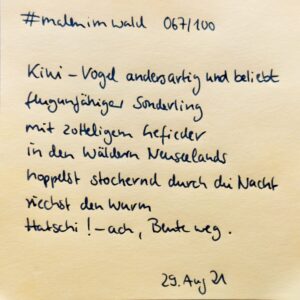 #malenimwald 067/100
Kiwi – Vogel andersartig und beliebt
flugunfähiger Sonderling
mit zotteligem Gefieder
in den Wäldern Neuseelands
hoppelst stochernd durch die Nacht
riechst den Wurm
Hatschi! – ach, Beute weg.
29. Aug 21